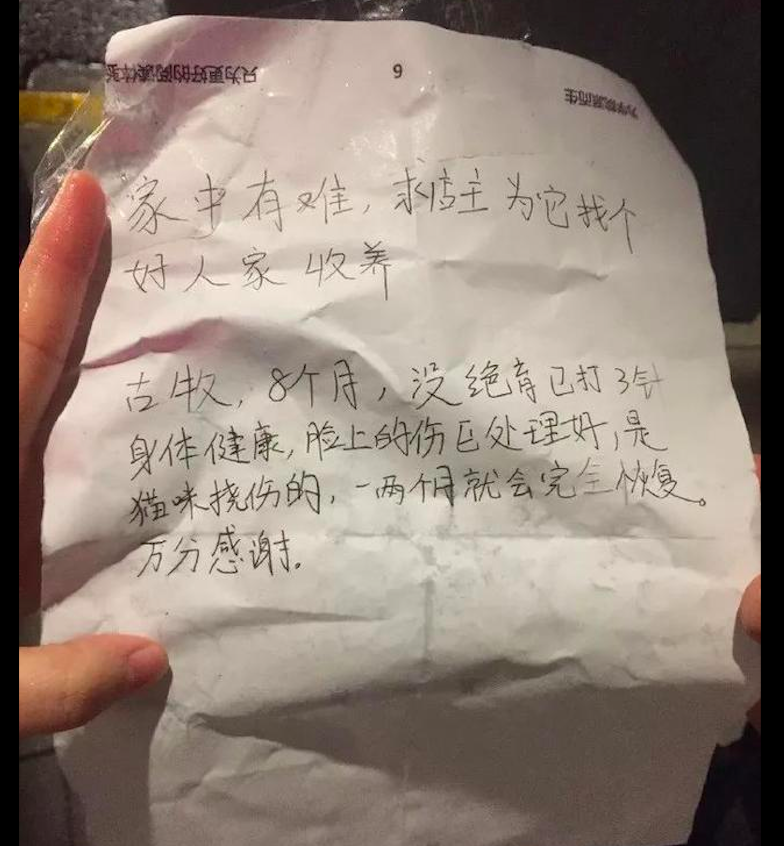 只为更好的阅读体验
6
为学霸而生
家中有难，求店主为它找个
好人家收养
古牧，8个月，没绝育已打3针
身体健康，脸上的伤已处理好，是
猫咪挠伤的，一两个月就会完全恢复。
万分感谢。